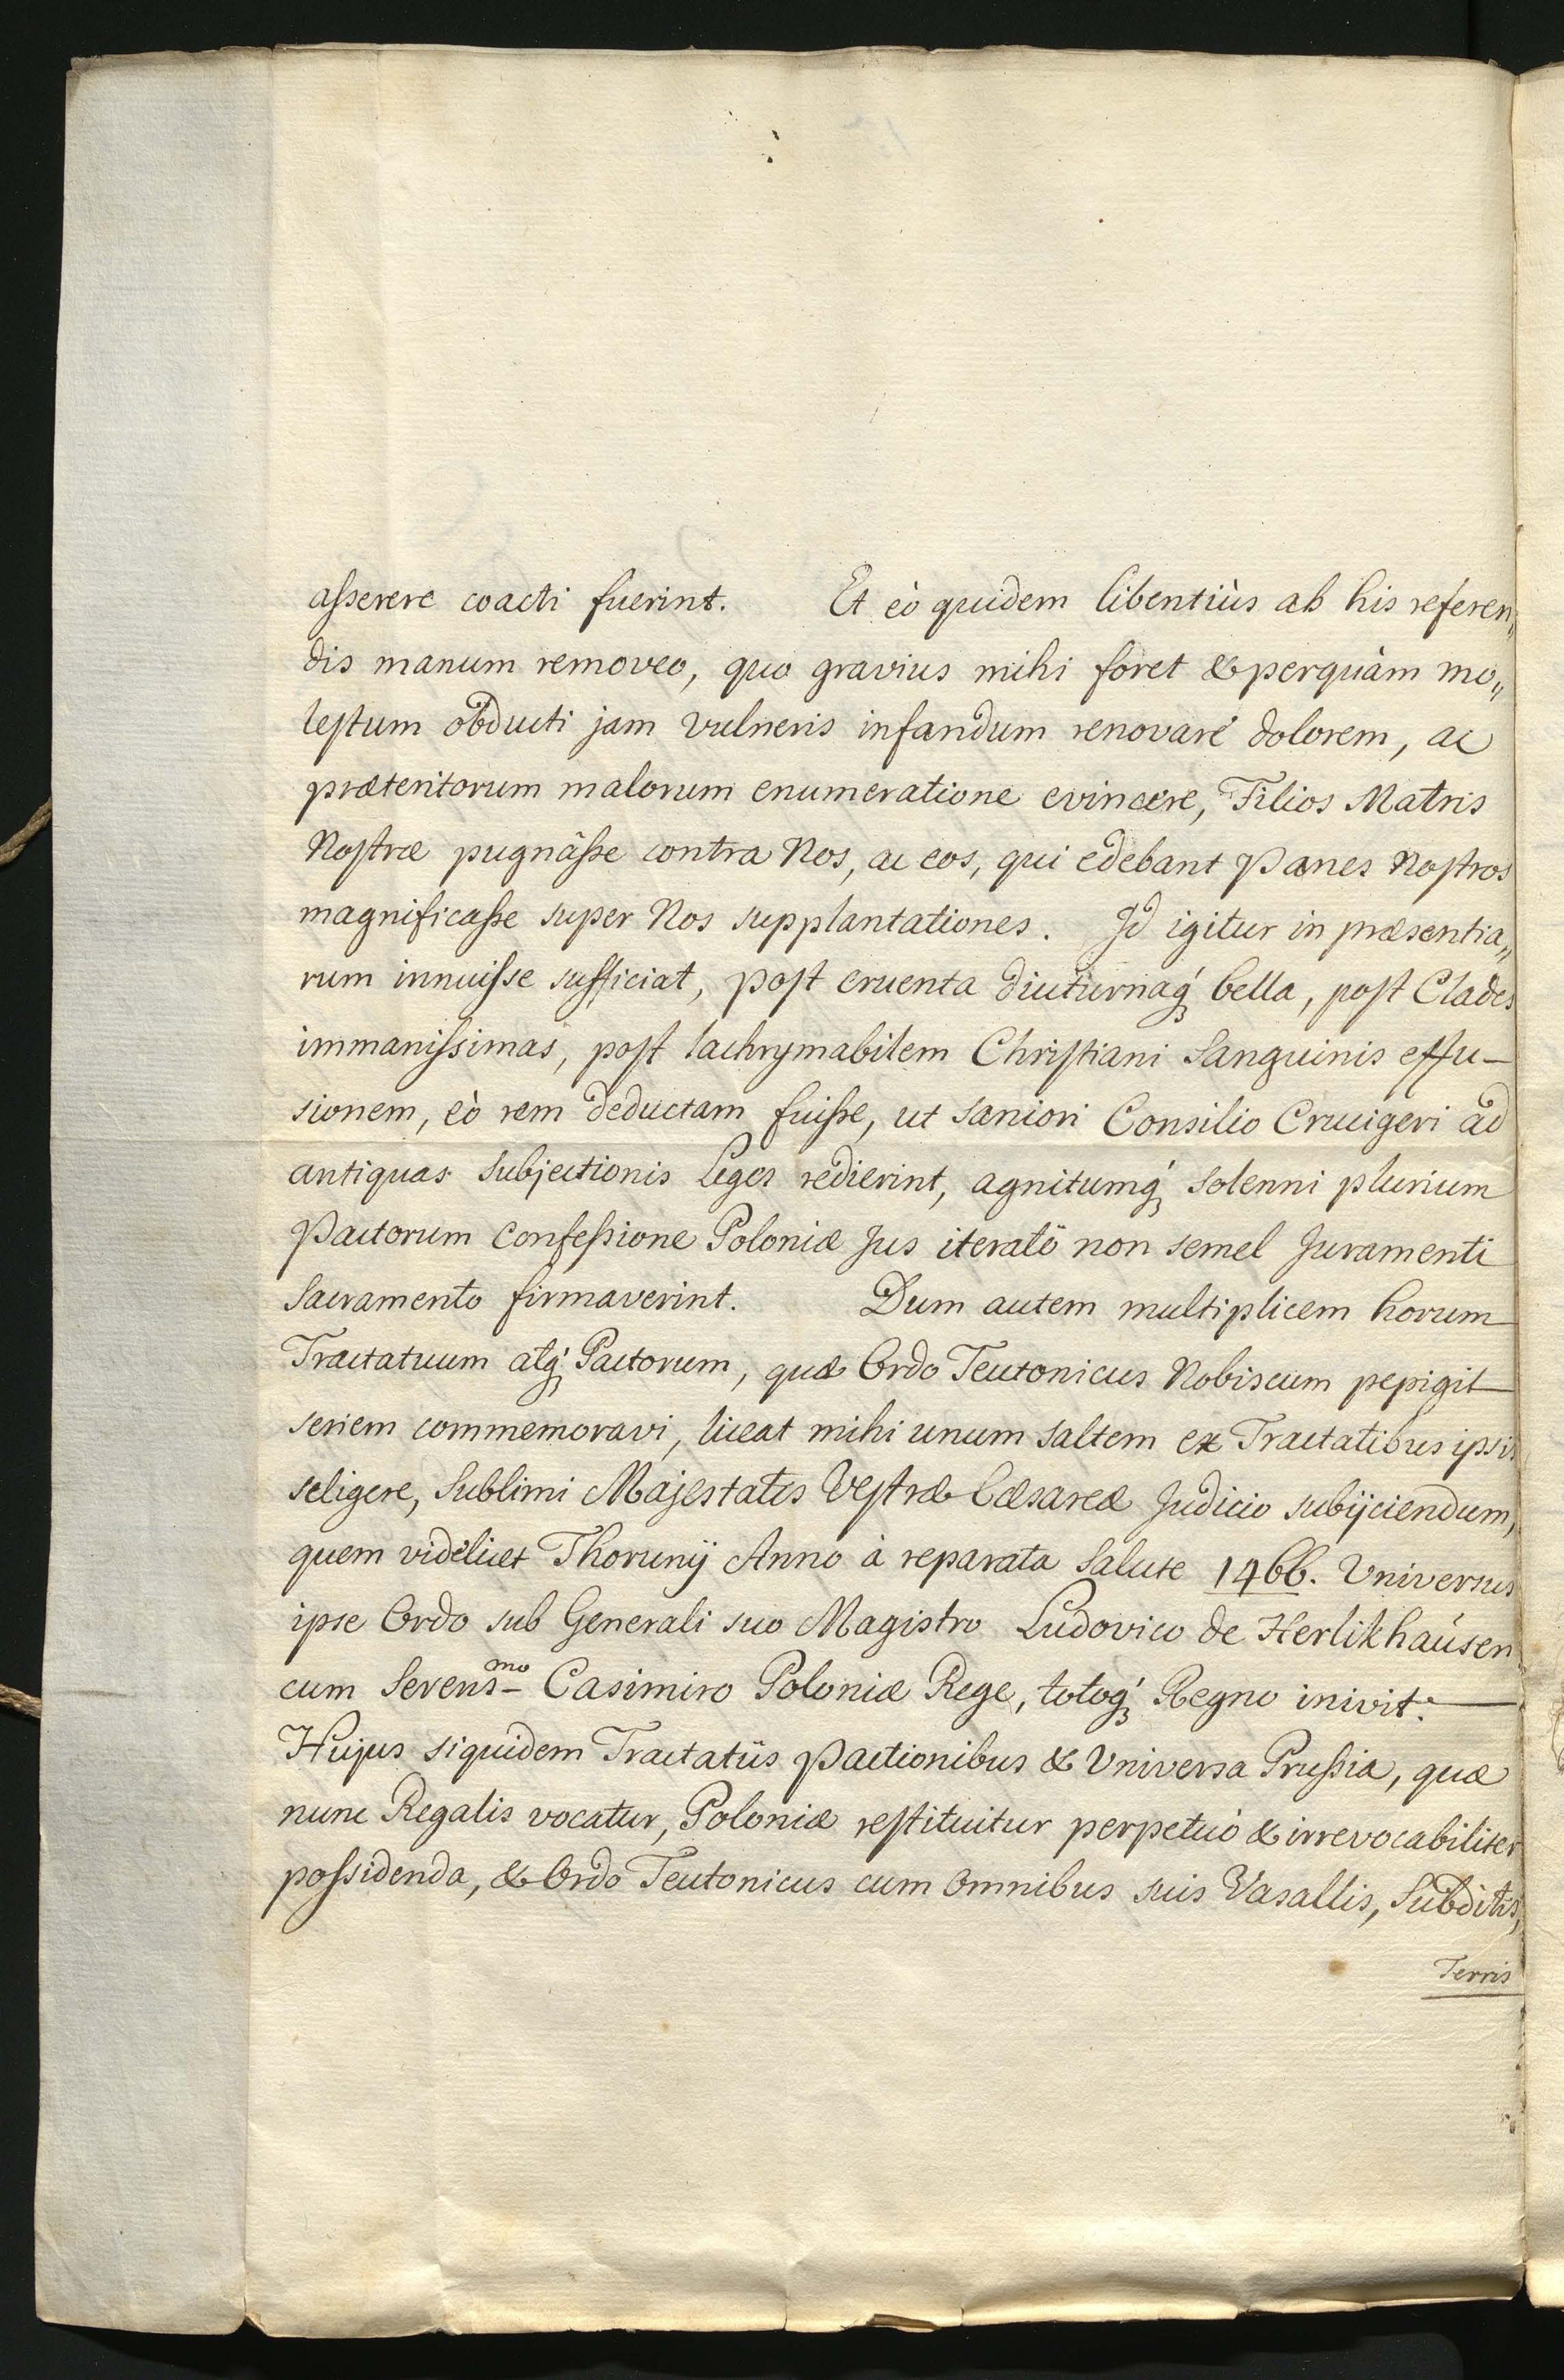 asserere coacti fuerint. Et eò quidem libentiùs ab his referen„
dis manum removeo, quo gravius mihi foret & perquàm mo„
lestum obducti jam vulneris infandum renovare dolorem, ac
præteritorum malorum enumeratione evincere, Filios Matris
Nostræ pugnâsse contra Nos, ac eos, qui edebant Panes Nostros
magnificasse super Nos supplantationes. Id igitur in præsentia„
rum innuisse sufficiat, post cruenta diuturnaq́ꝫ bella, post Clades
immanissimas, post lachrymabilem Christiani Sanguinis effu-
sionem, eò rem deductam fuisse, ut saniori Consilio Crucigeri ad
antiquas Subjectionis Leges redierint, agnitumq́ꝫ solenni plurium
Pactorum Confessione Poloniæ Jus iteratò non semel Juramenti
Sacramento firmaverint. Dum autem multiplicem horum
Tractatuum atq́ꝫ Pactorum, quæ Ordo Teutonicus Nobiscum pepigit
seriem commemoravi, liceat mihi unum saltem ex Tractatibus ipsis
seligere, Sublimi Majestatis Vestræ Cæsareæ Judicio subijciendum,
quem videlicet Thorunij Anno à reparata Salute 1466. Universus
ipse Ordo sub Generali suo Magistro Ludovico de Herlikhaúsen
cum Serens-mo Casimiro Poloniæ Rege, totoq́ꝫ Regno inivit.
Hujus siquidem Tractatûs Pactionibus & Universa Prussia, quæ
nunc Regalis vocatur, Poloniæ restituitur perpetuò & irrevocabiliter
possidenda, & Ordo Teutonicus cum Omnibus suis Vasallis, Subditis,
Terris